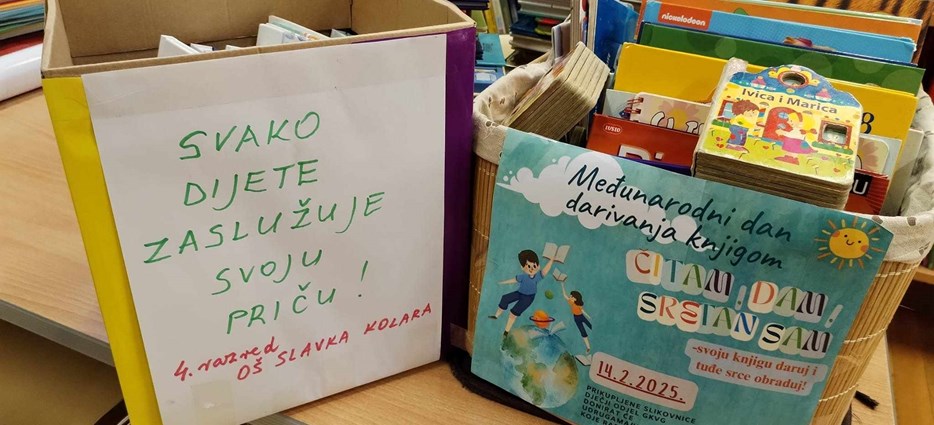 SVAKO
DIJETE
ZASLUŽUJE
SVOJU
PRIČU !
4. razred
OŠ SLAVKA KOLARA
nickelodeon
Ivica i Marica
Međunarodni dan
darivanja knjigom
ČITAM, DAM,
SRETAN SAM
-svoju knjigu daruj i
tuđe srce obraduj!
14.2.2025.
PRIKUPLJENE SLIKOVNICE
DJEČJI ODJEL GKVG
DONIRAT ĆE
UDRUGAMA
KOJE